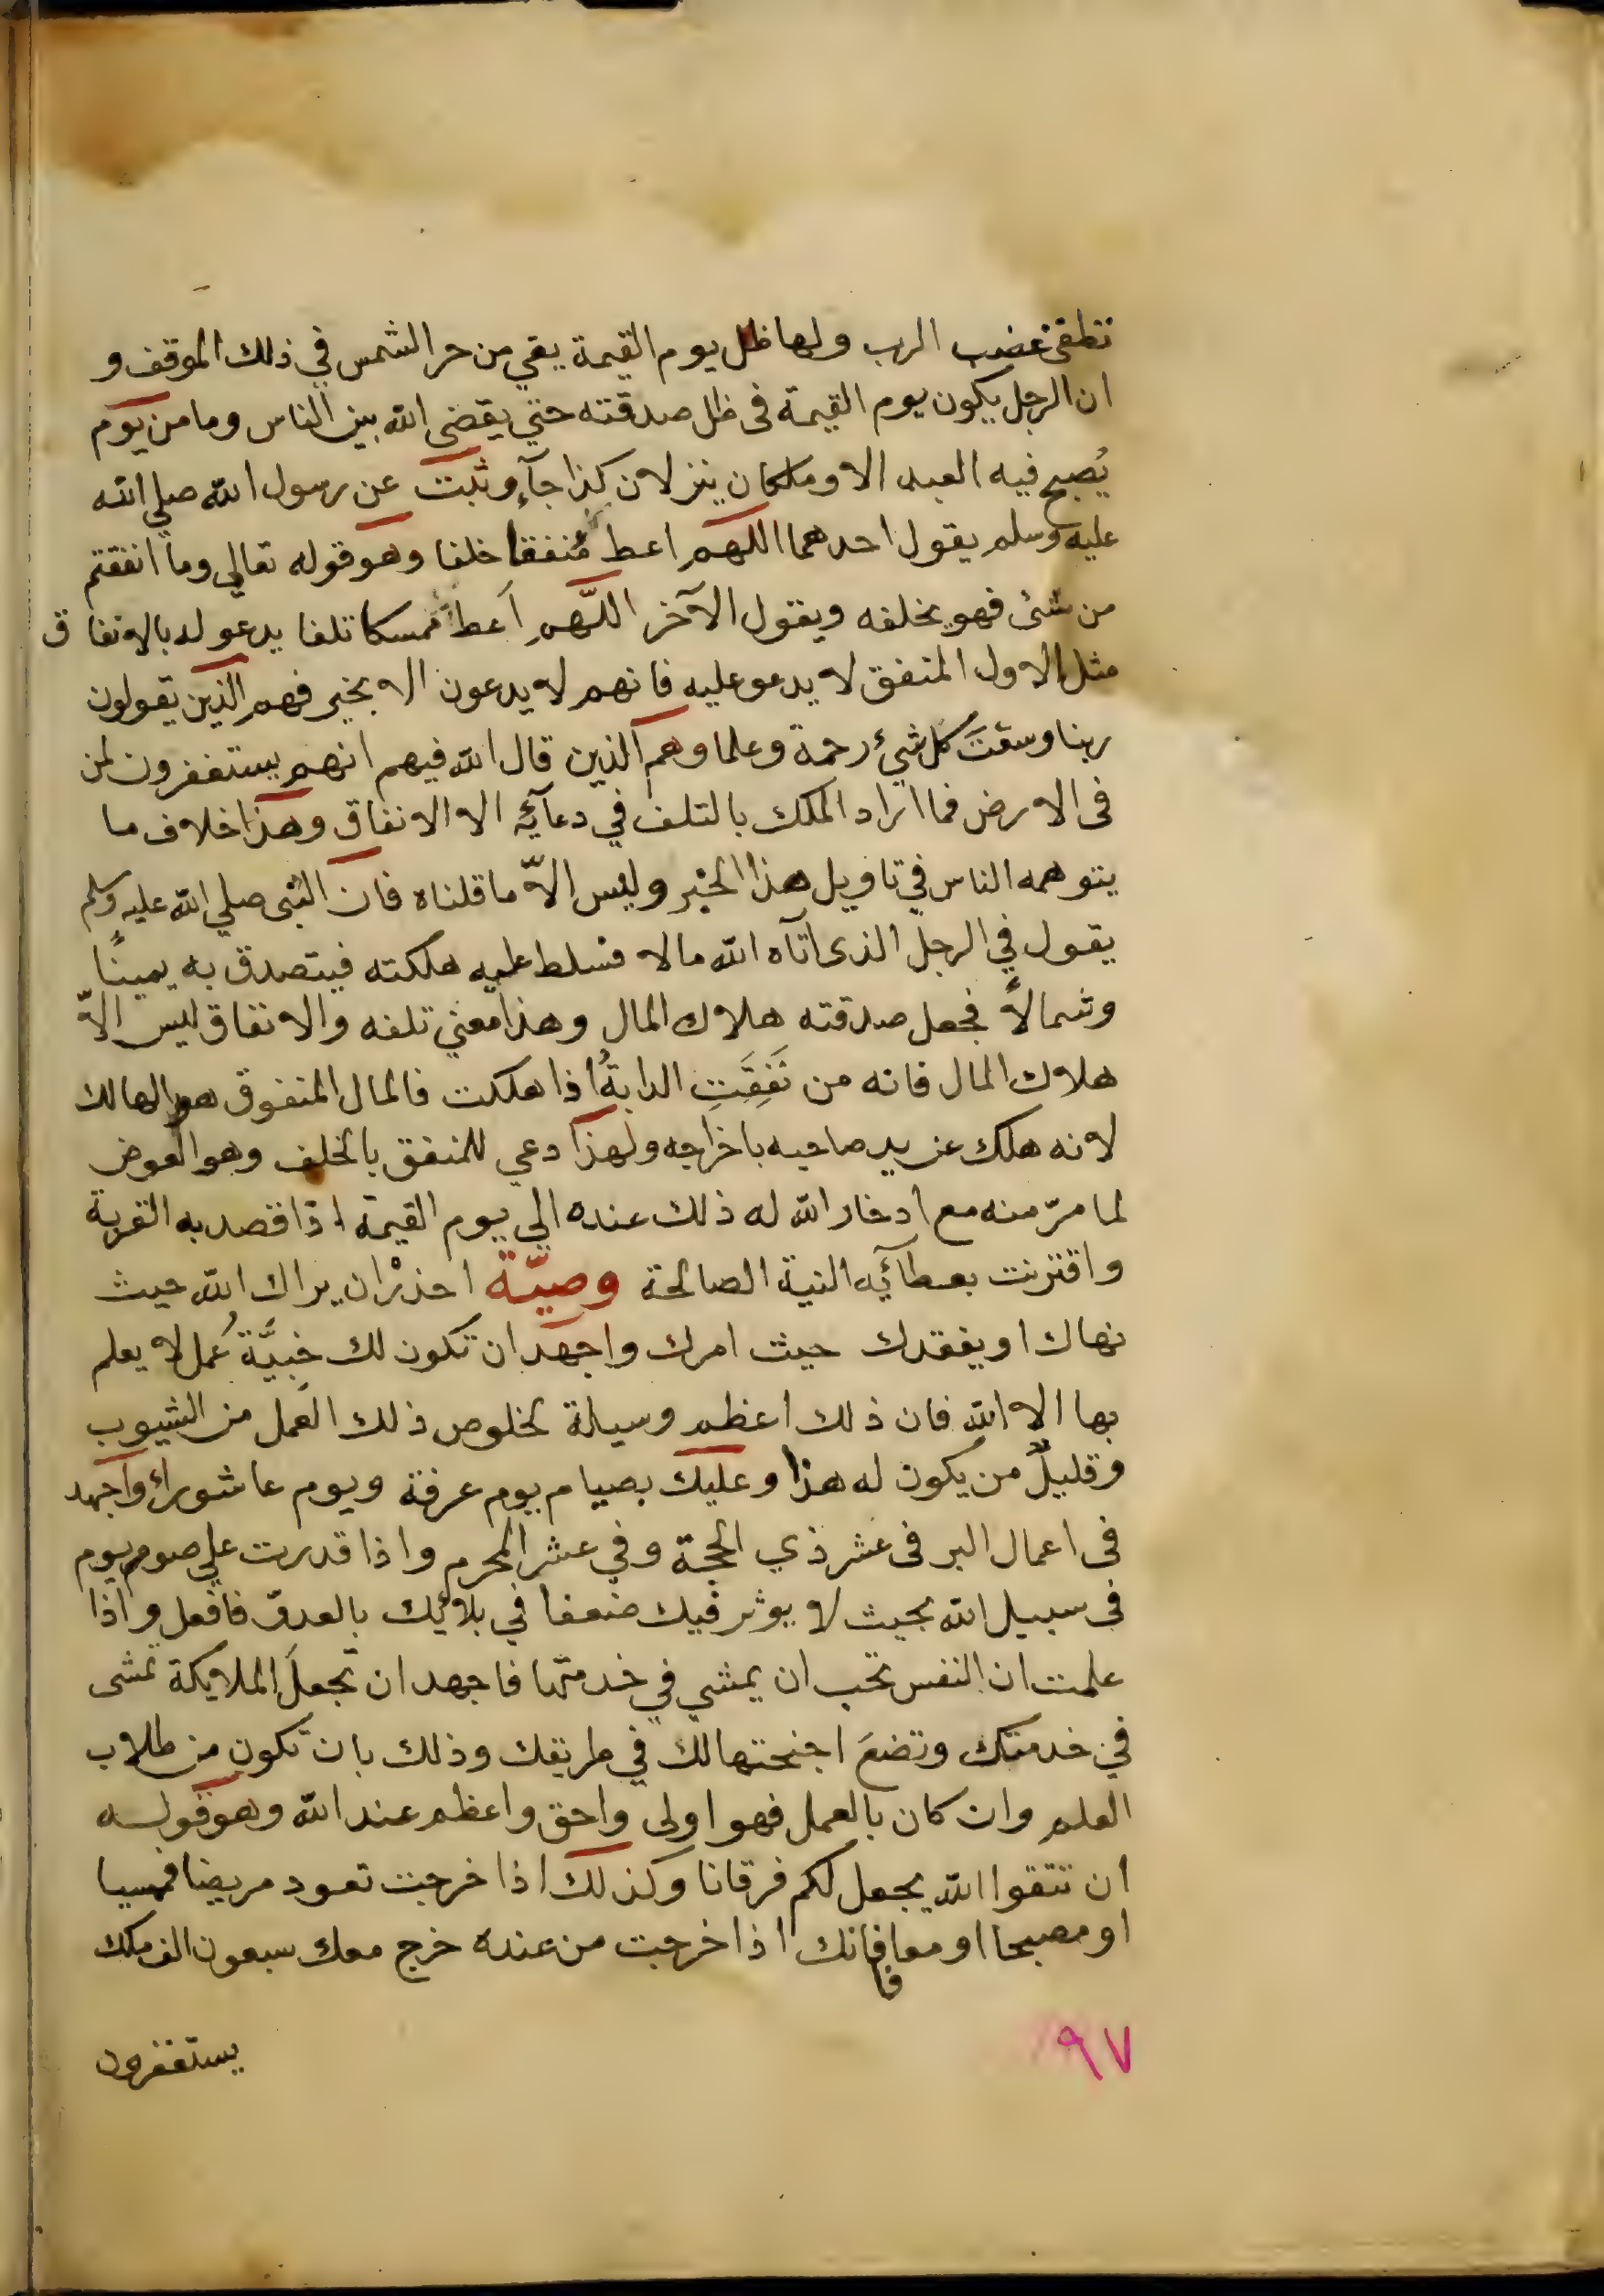 تطفئ غضب الرب ولها ظل يوم القيمة يقي من حر الشمس في ذلك الموقف و
ان الرجل يكون يوم القيمة فى ظل صدقته حتي يقضى الله بين الناس وما من يوم
يُصبح فيه العبد الا وملكان ينزلان كذا جآء وثبت عن رسول الله صلي الله
عليه وسلم يقول احدهما اللهم اعط مُنفقا خلفا وهو قوله تعالى وما انفقتم
من شئ فهو يخلفه ويقول الآخر اللّهم اَعط مُمسكا تلفا يدعو له بالانفاق
مثل الاول المنفق لا يدعو عليه فانهم لا يدعون الا بخير فهم الذين يقولون
ربنا وسعتَ كل شيء رحمة وعلما وهم الذين قال الله فيهم انهم يستغفرون لمن
فى الارض فما اراد الملك بالتلف في دعآئه الا الانفاق وهذا خلاف ما
يتوهمه الناس في تاويل هذا الخبر وليس الاّ ما قلناه فان النبى صلي الله عليه وسلم
يقول في الرجل الذى اتآه الله مالا فسلط عليه هلكته فيتصدق به يمينًا
وشمالاً فجعل صدقته هلاك المال وهذا معني تلفه والانفاق ليس الاّ
هلاك المال فانه من نَفِقَتِ الدابةُ اذا هلكت فالمال المنفوق هو الهالك
لانه هلك عن يد صاحبه باخراجه ولهذا دعي للمنفق بالخلف وهو العوض
لما مرّ منه مع ادخار الله له ذلك عنده الي يوم القيمة اذا قصد به القربة
واقترنت بعطآئه النية الصالحة وصيّة احذرْ ان يراك الله حيث
نهاك او يفقدك حيث امرك واجهد ان تكون لك خَبيَّةُ عمل لا يعلم
بها الا الله فان ذلك اعظم وسيلة لخلوص ذلك العمل من الشيوب
وقليلٌ من يكون له هذا وعليك بصيام يوم عرفة ويوم عاشوراء واجهد
فى اعمال البر فى عشر ذي الحجة وفي عشر المحرم واذا قدرت علي صوم يوم
فى سبيل الله بحيث لا يوثر فيك ضعفا في بلائك بالعدوّ فافعل واذا
علمت ان النفس تحب ان يمشي في خدمتها فاجهد ان تجعلَ الملايكة تمشى
في خدمتك وتضعَ اجنحتها لك في طريقك وذلك بان تكون من طلاب
العلم وان كان بالعمل فهو اولى واحق واعظم عند الله وهو قوله
ان تتقوا الله يجعل لكم فرقانا وكذلك اذا خرجت تعود مريضا ممسيا
او مصبحا او معا فانك اذا خرجت من عنده خرج معك سبعون الف ملك
فا
٩٧
يستغفرون